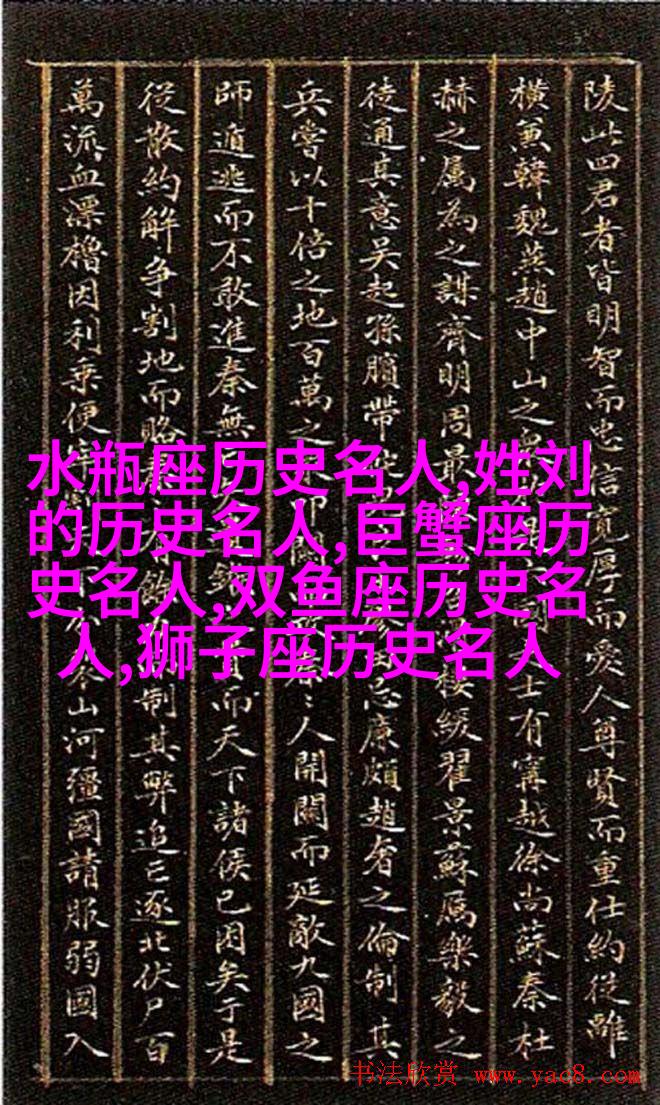 陵此四君者皆明智而忠信寬厚而愛人尊賢而重仕約從離
橫兼韓魏燕趙中山之 士有寗越徐尚蘇秦杜
赫之屬為之謀齊明周最 緩翟景蘇厲樂毅之
徒通其意吳起孫臏帶 忌廉頗趙奢之倫制其
兵嘗以十倍之地百萬之 人開關而延敵九國之
師遁逃而不敢進秦無 而天下諸侯已困矣于是
從散約解爭割地而賂 制其弊追亡逐北伏尸百
萬流血漂櫓因利乘便 山河彊國請服弱國入
水瓶座历史名人,姓刘
的历史名人,巨蟹座历
史名人,双鱼座历史名
人,狮子座历史名人
书法欣赏 www.yac8.com